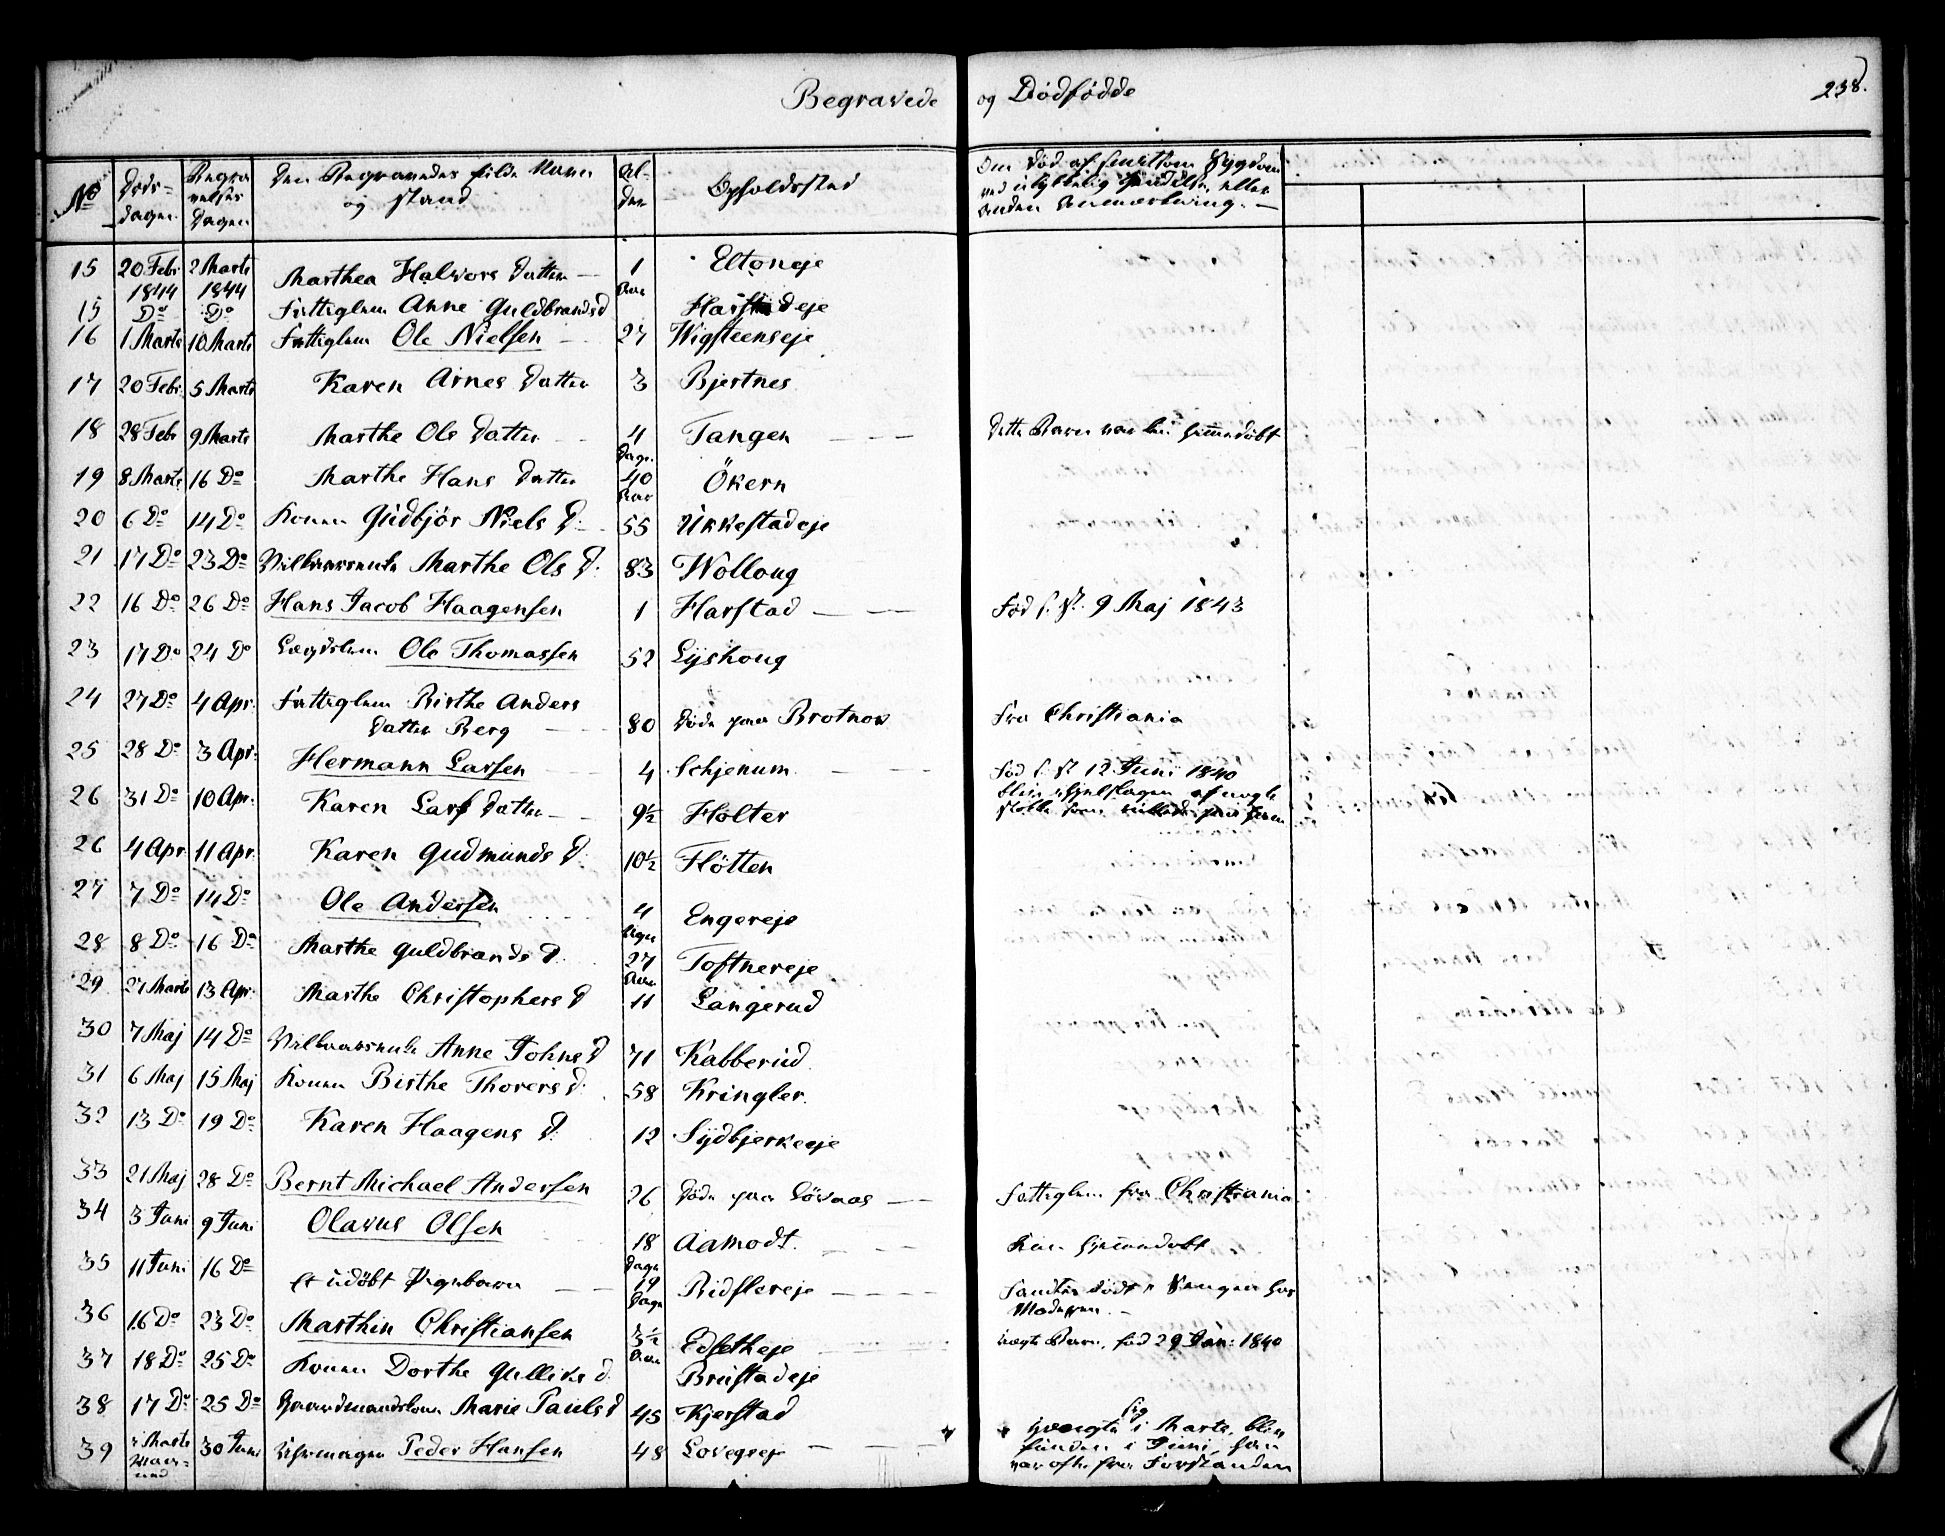 Begravede og Dødfødde
238.
No Døds-dagen Begravelses Dagen Den Begravedes fulde Navn og Stand Alder Opholdsstad Om Død af smitsom Sygdom ved ulykkelig Hændelse eller anden Anmærkning. —
15 20 Febr 1844 2 Marts 1844 Marthea Halvors Datter — 1 Aar Eltoneje
15 Do Do Fattiglem Anne Guldbrandsd Harstadeje
16 1 Marts 10 Marts Fattiglem Ole Nielsen 27 Wigsteenseje
17 20 Febr. 5 Marts Karen Arnes Datter 3 Bjertnes
18 28 Febr 9 Marts Marthe Ols Datter 4 Dage. Tangen — — — Dette Barn var kun hjemmedøbt
19 8 Marts 16 Do Marthe Hans Datter 40 Aar Økern
20 6 Do 14 Do Konen Gudbjør Niels D: 55 Ukkestadeje
21 17 Do 23 Do Vilkaarsenke Marthe Ols D: 83 Wolloug
22 16 Do 26 Do Hans Jacob Haagensen 1 Harstad — — Fød 9 Maj 1843
23 17 Do 24 Do Lægdslem Ole Thomassen 52 Lyshoug
24 27 Do 4 Apr. Fattiglem Birthe Anders
Datter Berg — — 80 Døde paa Brotnov Fra Christiania
25 28 Do 3 Apr. Hermann Larsen 4 Schjenum — — Fød 12 Juni 1840
26 31 Do 10 Apr. Karen Lars Datter — 9½ Holter blev ihjelslagen af nogle
Stokke som rullede paa hende
26 4 Apr 11 Apr. Karen Gudmunds D: 10½ Fløtten
27 7 Do 14 Do Ole Andersen 4 Uger Engereje
28 8 Do 16 Do Marthe Guldbrands D: 27 Aar Toftnereje
29 27 Marts 13 Apr. Marthe Christophers D 11 Langerud
30 7 Maj 14 Do Vilkaarsenke Anne Johns D 71 Kabberud
31 6 Maj 15 Maj Konen Birthe Thorers D: 58 Kringler
32 13 Do 19 Do Karen Haagens D: 12 Sydbjerkeeje
33 21 Maj 28 Do Bernt Michael Andersen 26 Døde paa Løvaas — Fattiglem fra Christiania
34 3 Juni 9 Juni Olavus Olsen 18 Dage Aamodt. — — — Kun hjemmedøbt
35 11 Juni 16 Do et udøbt Pigebarn — — 19 Dage Ridstereje — — — Fandtes dødt i Sengen hos
Moderen. —
36 16 Do 23 Do Marthin Christiansen 3½ Aar Edsetheje uægte Barn, fød 29 Jan: 1840
37 18 Do 25 Do Konen Dorthe Gulliks d. Brustadeje
38 17 Do 25 Do Gaardmandskone Marie Pauls d 45 Kjerstad
39 Marts 30 Juni Peder Hansen 48 Lovegeje — — — hængte sig i Marts, blev
funden i Juni, han
var ofte fra Forstanden